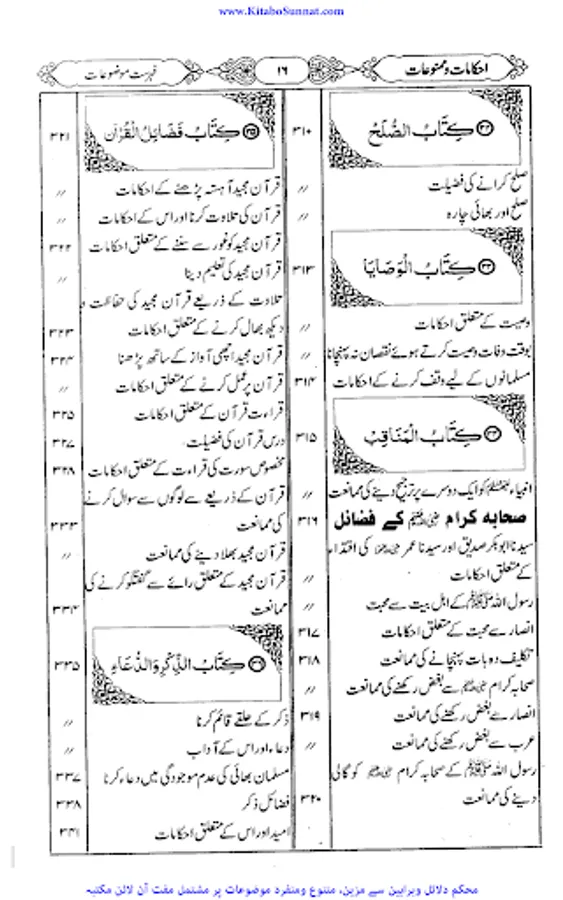 www.KitaboSunnat.com
احکامات و ممنوعات
۱۶
فہرست موضوعات
کِتَابُ الصُّلْحُ ۳۱۰
صلح کرانے کی فضیلت //
صلح اور بھائی چارہ //
کِتَابُ الْوَصَایَا ۳۱۳
وصیت کے متعلق احکامات //
بوقت وفات وصیت کرتے ہوئے نقصان نہ پہنچانا //
مسلمانوں کے لیے وقف کرنے کے احکامات ۳۱۴
کِتَابُ الْمَنَاقِبْ ۳۱۵
انبیاء علیہم السلام کو ایک دوسرے پر ترجیح دینے کی ممانعت //
صحابہ کرام رضی اللہ عنہم کے فضائل ۳۱۶
سیدنا ابوبکر صدیق اور سیدنا عمر رضی اللہ عنہما کی اقتداء
کے متعلق احکامات //
رسول اللہ ﷺ کے اہل بیت سے محبت //
انصار سے محبت کے متعلق احکامات ۳۱۷
تکلیف دہ بات پہنچانے کی ممانعت ۳۱۸
صحابہ کرام رضی اللہ عنہم سے بغض رکھنے کی ممانعت //
انصار سے بغض رکھنے کی ممانعت ۳۱۹
عرب سے بغض رکھنے کی ممانعت //
رسول اللہ ﷺ کے صحابہ کرام رضی اللہ عنہم کو گالی
دینے کی ممانعت ۳۲۰
کِتَابُ فَضَائِلُ الْقُرْآن ۳۲۱
قرآن مجید آہستہ پڑھنے کے احکامات //
قرآن کی تلاوت کرنا اور اس کے احکامات //
قرآن مجید کو غور سے سننے کے متعلق احکامات ۳۲۲
قرآن مجید کی تعلیم دینا //
تلاوت کے ذریعے قرآن مجید کی حفاظت و
دیکھ بھال کرنے کے متعلق احکامات ۳۲۳
قرآن مجید اچھی آواز کے ساتھ پڑھنا ۳۲۴
قرآن پر عمل کرنے کے متعلق احکامات //
قراءت قرآن کے متعلق احکامات ۳۲۵
درس قرآن کی فضیلت ۳۲۷
مخصوص سورت کی قراءت کے متعلق احکامات ۳۲۸
قرآن کے ذریعے سے لوگوں سے سوال کرنے
کی ممانعت ۳۳۳
قرآن مجید بھلا دینے کی ممانعت //
قرآن مجید کے متعلق رائے سے گفتگو کرنے کی
ممانعت ۳۳۴
کِتَابُ الذِّکْرِ وَالدُّعَاءِ ۳۳۵
ذکر کے حلقے قائم کرنا //
دعاء اور اس کے آداب //
مسلمان بھائی کی عدم موجودگی میں دعاء کرنا ۳۳۷
فضائل ذکر ۳۳۸
امید اور اس کے متعلق احکامات ۳۴۱
محکم دلائل وبراہین سے مزین، متنوع ومنفرد موضوعات پر مشتمل مفت آن لائن مکتبہ